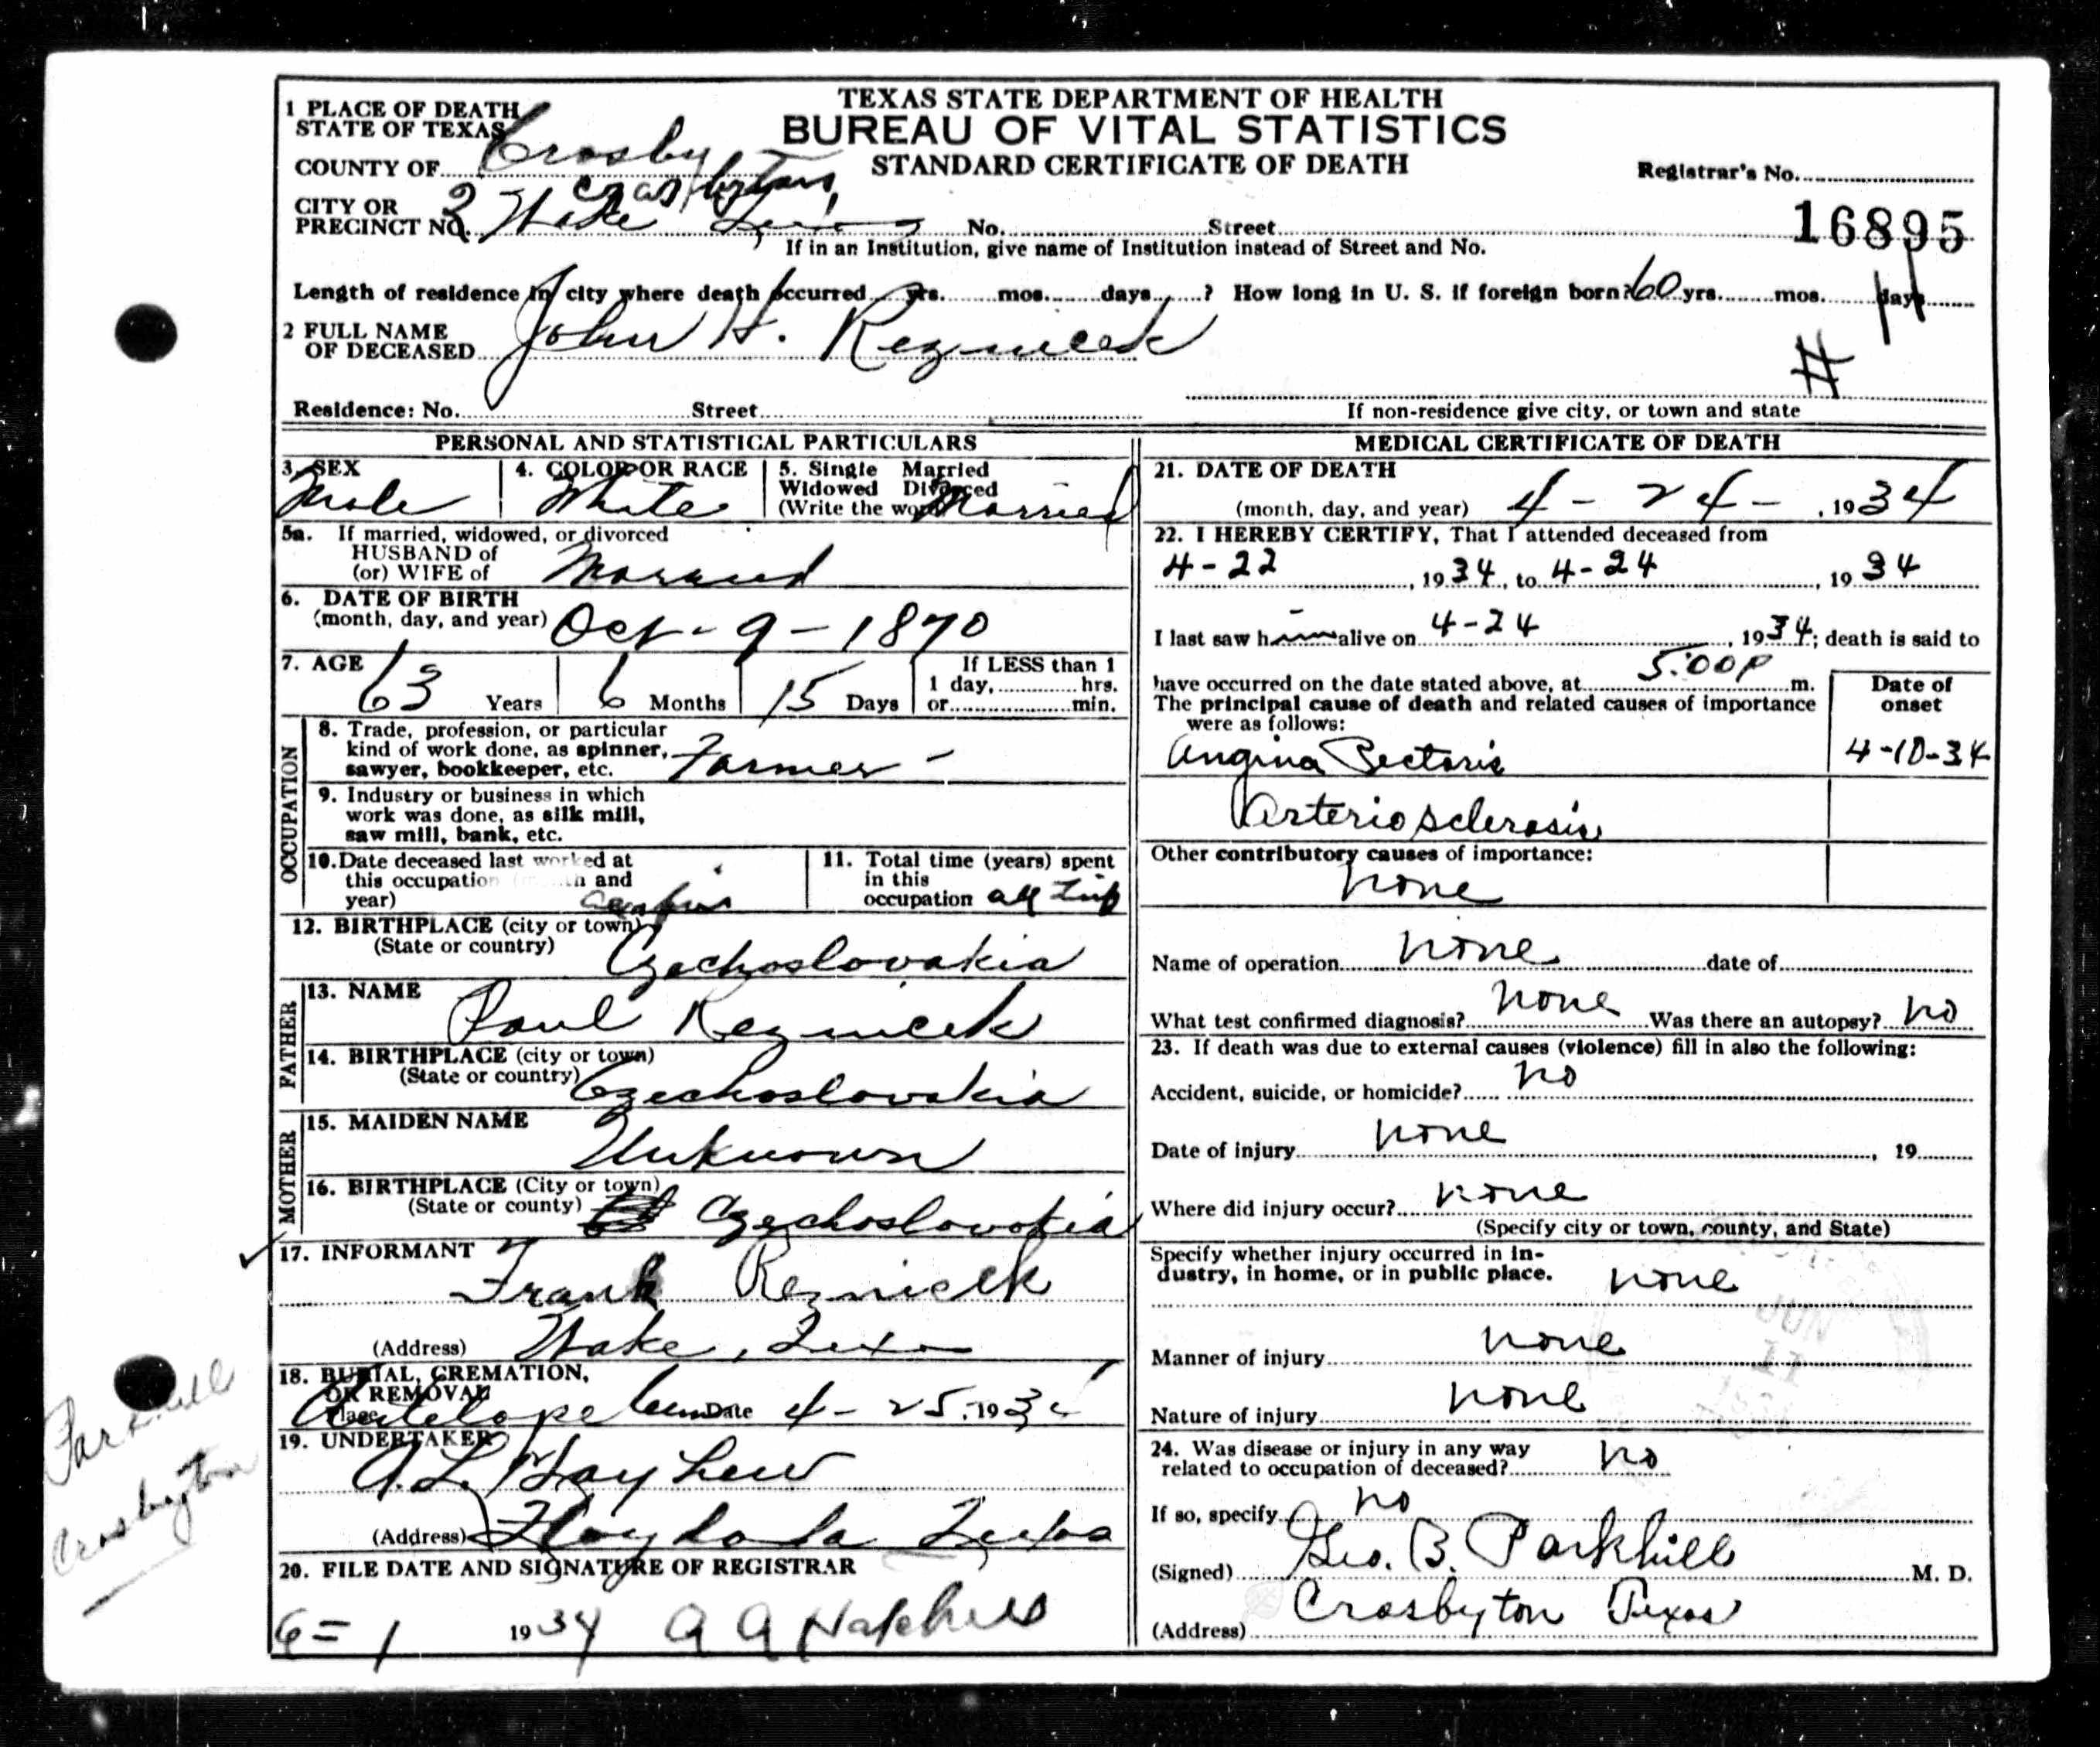 TEXAS STATE DEPARTMENT OF HEALTH
BUREAU OF VITAL STATISTICS
STANDARD CERTIFICATE OF DEATH
1 PLACE OF DEATH
STATE OF TEXAS
COUNTY OF Crosby
Crosbyton
CITY OR
PRECINCT NO. 2 Wake Texas No. Street
Registrar's No.
16895
If in an Institution, give name of Institution instead of Street and No.
Length of residence in city where death occurred yrs. mos. days ? How long in U. S. if foreign born? 60 yrs. mos. days
2 FULL NAME
OF DECEASED John H. Reznicek
#
Residence: No. Street
If non-residence give city, or town and state
PERSONAL AND STATISTICAL PARTICULARS
3. SEX
Male
4. COLOR OR RACE
White
5. Single Married
Widowed Divorced
(Write the word) Married
5a. If married, widowed, or divorced
HUSBAND of
(or) WIFE of Married
6. DATE OF BIRTH
(month, day, and year) Oct - 9 - 1870
7. AGE
63 Years 6 Months 15 Days
If LESS than 1
1 day, hrs.
or min.
OCCUPATION
8. Trade, profession, or particular
kind of work done, as spinner, Farmer -
sawyer, bookkeeper, etc.
9. Industry or business in which
work was done, as silk mill,
saw mill, bank, etc.
10. Date deceased last worked at
this occupation (month and
year)
11. Total time (years) spent
in this
occupation all
12. BIRTHPLACE (city or town)
(State or country) Czechoslovakia
FATHER
13. NAME
Paul Reznicek
14. BIRTHPLACE (city or town)
(State or country) Czechoslovakia
MOTHER
15. MAIDEN NAME
Unknown
16. BIRTHPLACE (City or town)
(State or county) Czechoslovokia
17. INFORMANT
Frank Reznicek
(Address) Wake, Texas
18. BURIAL, CREMATION,
OR REMOVAL
Place Antelope Cem Date 4 - 25, 1934
19. UNDERTAKER
(Address) Floydada Texas
20. FILE DATE AND SIGNATURE OF REGISTRAR
6 = 1 1934
MEDICAL CERTIFICATE OF DEATH
21. DATE OF DEATH
(month, day, and year) 4 - 24 - , 1934
22. I HEREBY CERTIFY, That I attended deceased from
4-22 , 1934, to 4-24 , 1934
I last saw him alive on 4-24 , 1934; death is said to
have occurred on the date stated above, at 5:00P m.
The principal cause of death and related causes of importance
were as follows:
Date of
onset
Angina Pectoris 4-10-34
Arteriosclerosis
Other contributory causes of importance:
none
Name of operation none date of
What test confirmed diagnosis? none Was there an autopsy? no
23. If death was due to external causes (violence) fill in also the following:
Accident, suicide, or homicide? no
Date of injury none , 19
Where did injury occur? none
(Specify city or town, county, and State)
Specify whether injury occurred in in-
dustry, in home, or in public place. none
JUN
11
Manner of injury none
Nature of injury none
24. Was disease or injury in any way
related to occupation of deceased? no
If so, specify no
(Signed) Geo. B. Parkhill M. D.
(Address) Crosbyton Texas
Parkhill
Crosbyton